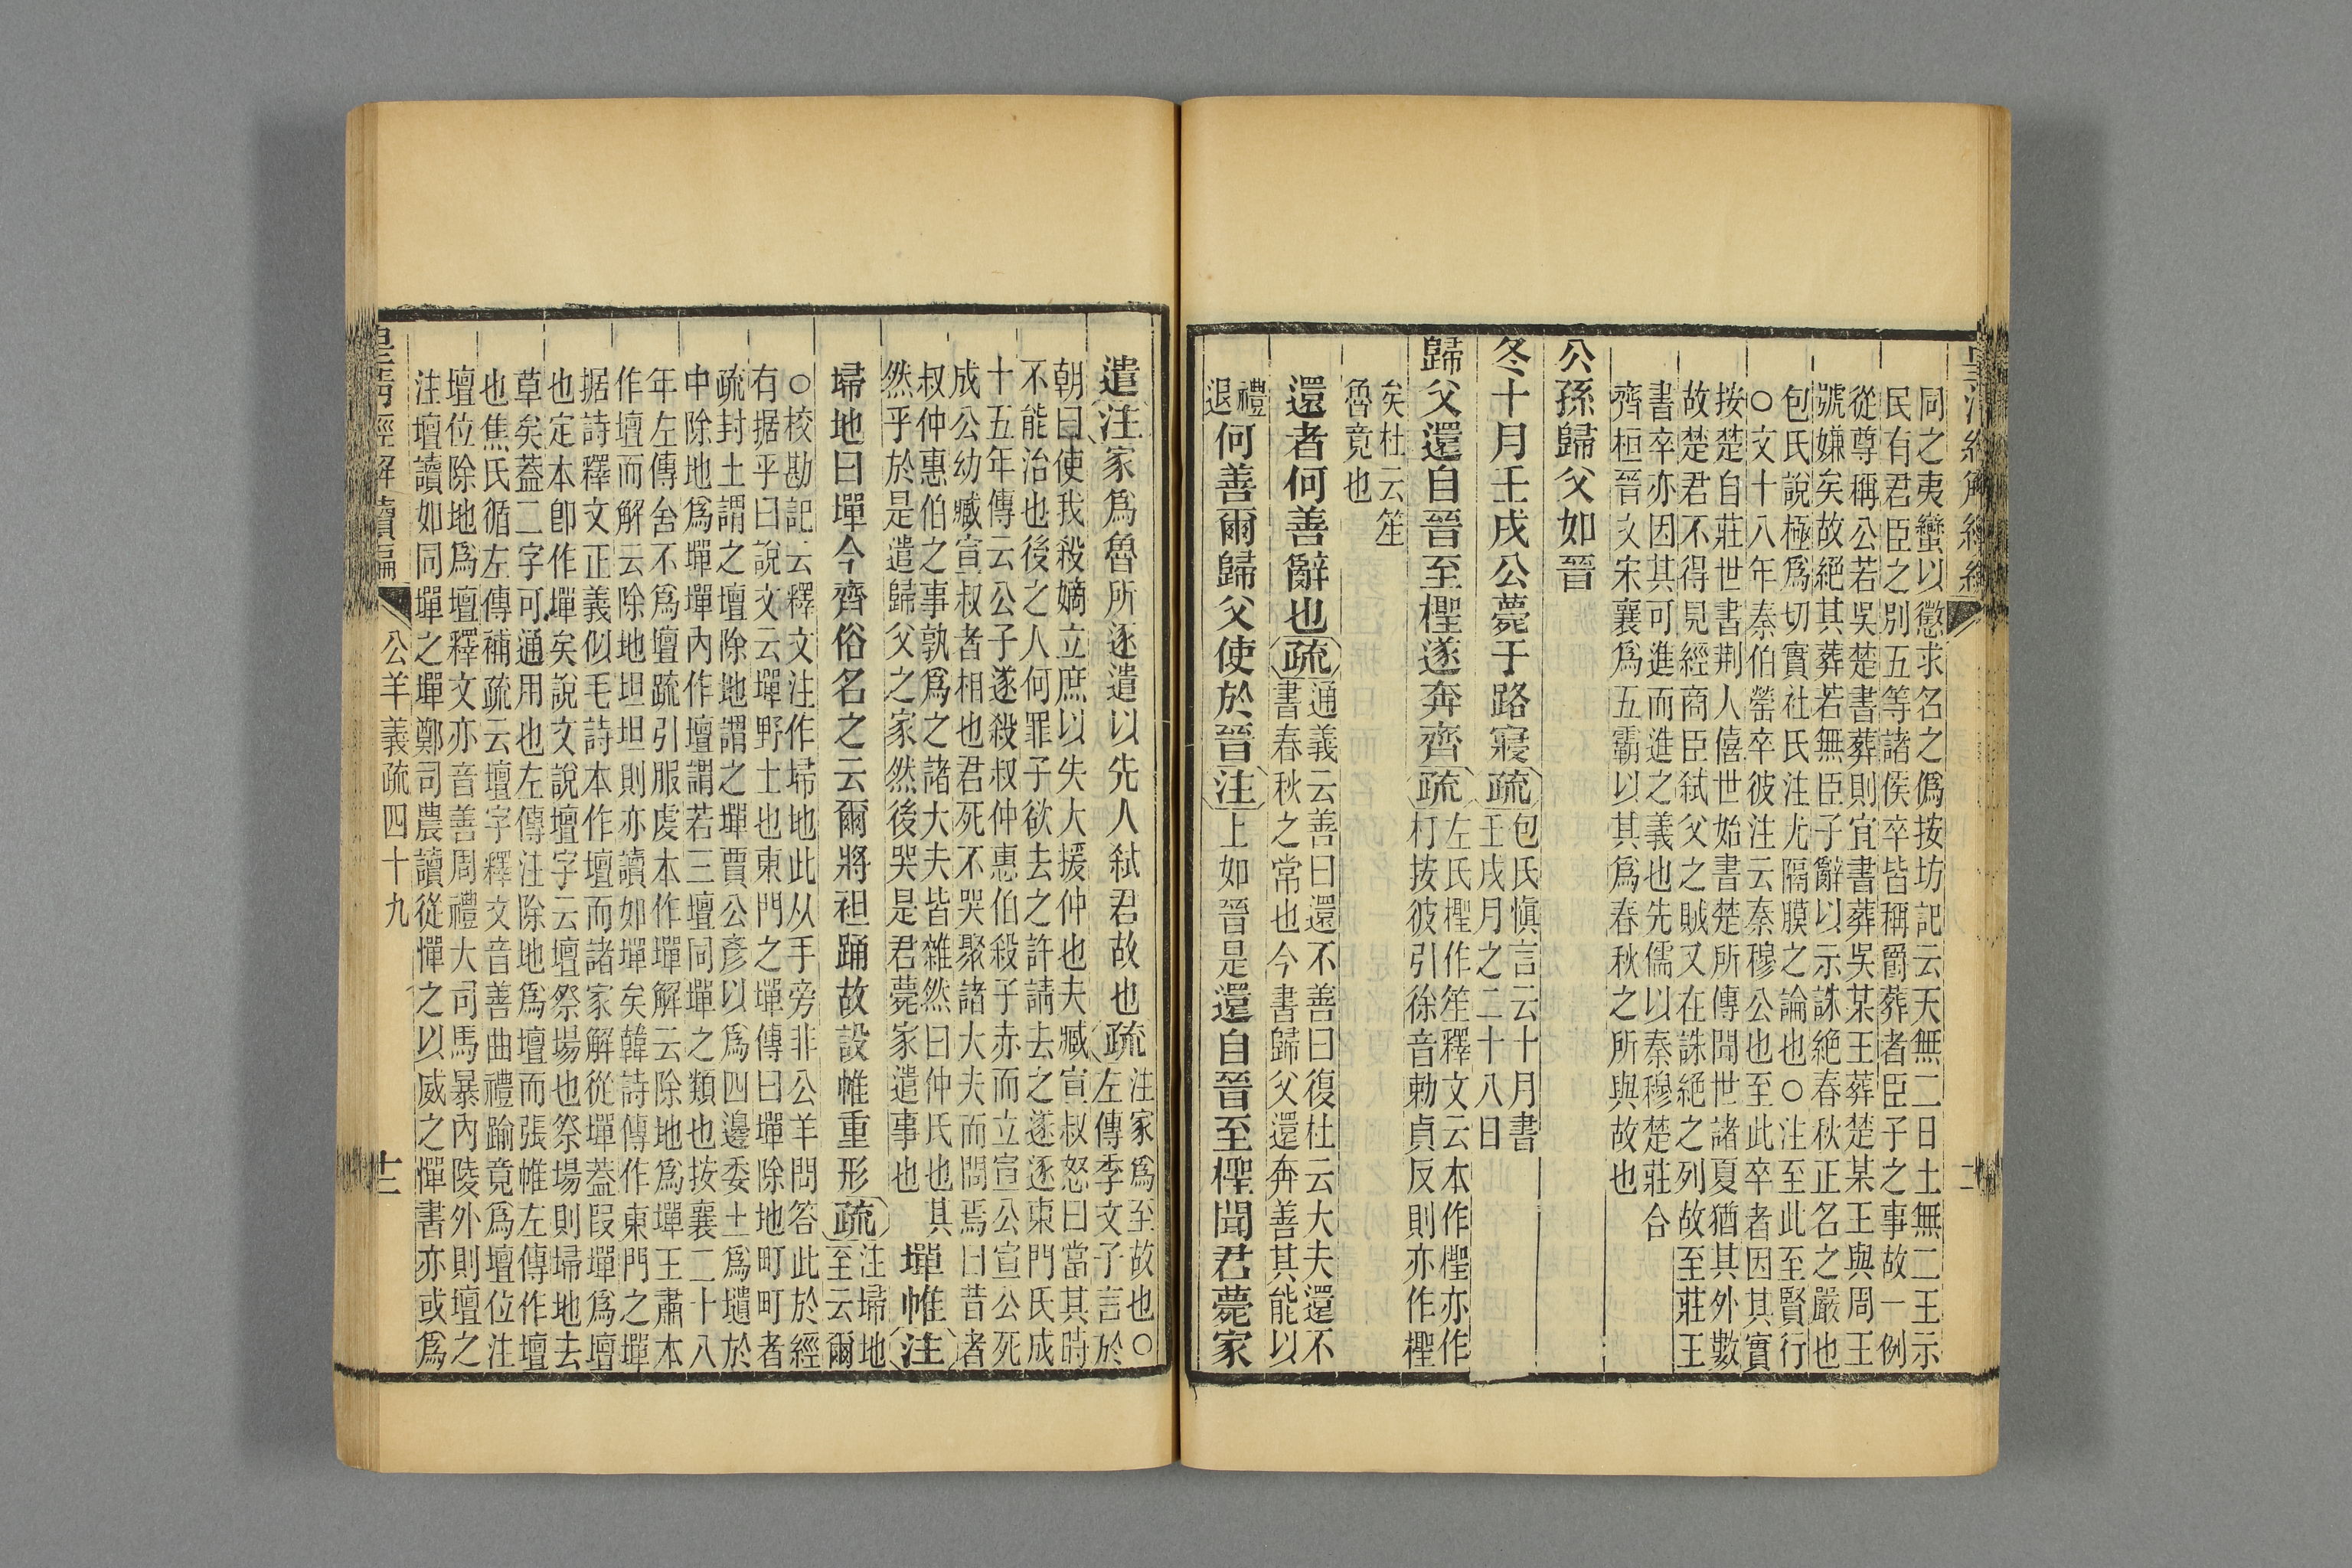 同之夷蠻以懲求名之僞按坊記云天無二日土無二王示
民有君臣之別五等諸侯卒皆稱爵葬者臣子之事故一例
從尊稱公若吳楚書葬則宜書葬吳某王葬楚某王與周王
號嫌矣故絕其葬若無臣子辭以示誅絕春秋正名之嚴也
包氏說極爲切實社氏注尤隔膜之論也○注至此至賢行
○文十八年秦伯罃卒彼注云秦穆公也至此卒者因其實
按楚自莊世書荆人僖世始書楚所傳聞世諸夏猶其外數
故楚君不得見經商臣弑父之賊又在誅絕之列故至莊王
書卒亦因其可進而進之義也先儒以秦穆楚莊合
齊桓晉文宋襄爲五霸以其爲春秋之所與故也
公孫歸父如晉
冬十月壬戌公薨于路寢疏包氏愼言云十月書
壬戌月之二十八日
歸父還自晉至檉遂奔齊疏左氏檉作笙釋文云本作檉亦作
朾按彼引徐音勅貞反則亦作檉
矣杜云笙
魯竟也
還者何善辭也疏通義云善曰還不善曰復杜云大夫還不
書春秋之常也今書歸父還奔善其能以
禮
退何善爾歸父使於晉注上如晉是還自晉至檉聞君薨家
遣注家爲魯所逐遣以先人弑君故也疏注家爲至故也○
左傳季文子言於
朝曰使我殺嫡立庶以失大援仲也夫臧宣叔怒曰當其時
不能治也後之人何罪子欲去之許請去之遂逐東門氏成
十五年傳云公子遂殺叔仲惠伯殺子赤而立宣公宣公死
成公幼臧宣叔者相也君死不哭聚諸大夫而問焉曰昔者
叔仲惠伯之事孰爲之諸大夫皆雜然曰仲氏也其
然乎於是遣歸父之家然後哭是君薨家遣事也
墠帷注
埽地曰墠今齊俗名之云爾將袒踊故設帷重形疏注埽地
至云爾
○校勘記云釋文注作埽地此从手旁非公羊問答此於經
有据乎曰說文云墠野土也東門之墠傳曰墠除地町町者
疏封土謂之壇除地謂之墠賈公彥以爲四邊委土爲壝於
中除地爲墠墠內作壇謂若三壇同墠之類也按襄二十八
年左傳舍不爲壇疏引服虔本作墠解云除地爲墠王肅本
作壇而解云除地坦坦則亦讀如墠矣韓詩傳作東門之墠
据詩釋文正義似毛詩本作壇而諸家解從墠蓋叚墠爲壇
也定本卽作墠矣說文說壇字云壇祭場也祭場則埽地去
草矣蓋二字可通用也左傳注除地爲壇而張帷左傳作壇
也焦氏循左傳補疏云壇字釋文音善曲禮踰竟爲壇位注
壇位除地爲壇釋文亦音善周禮大司馬暴內陵外則壇之
注壇讀如同墠之墠鄭司農讀從憚之以威之憚書亦或爲
公羊義疏四十九